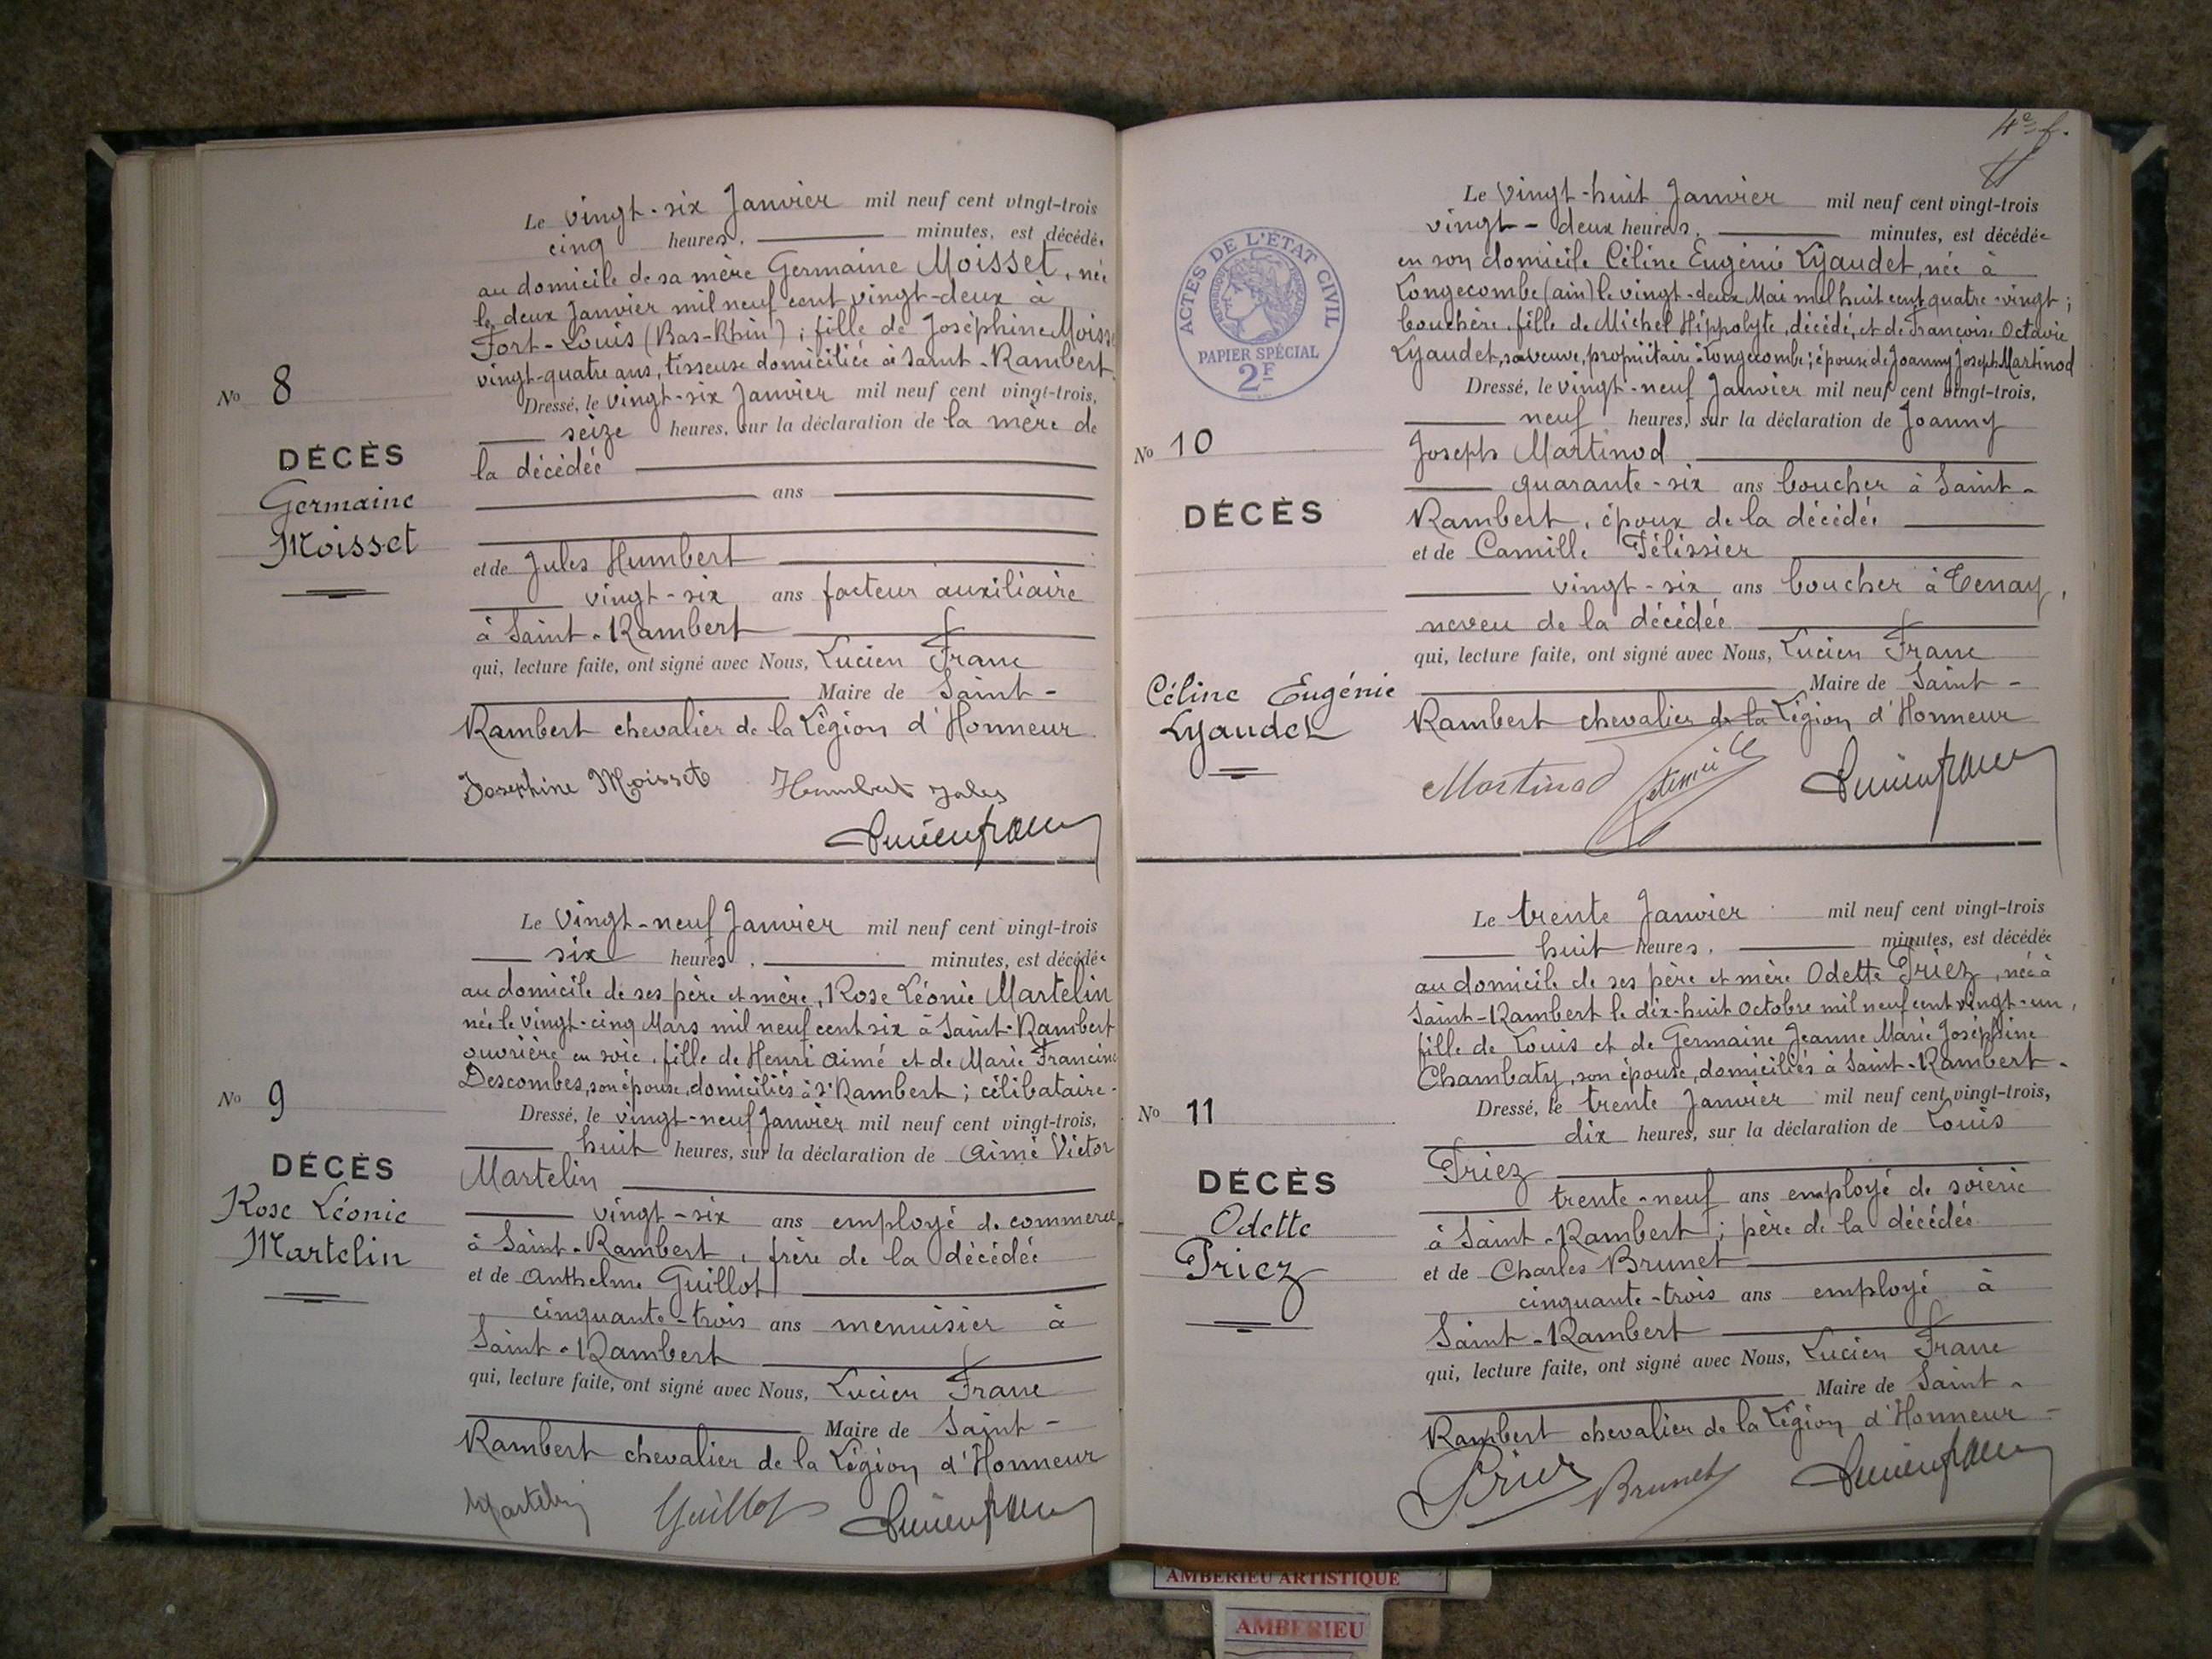 Le vingt-six Janvier mil neuf cent vingt-trois
cinq heures, minutes, est décédée
au domicile de sa mère Germaine Moisset, née
le deux Janvier mil neuf cent vingt-deux à
Fort-Louis (Bas-Rhin) ; fille de Joséphine Moisse
vingt-quatre ans, tisseuse domiciliée à Saint-Rambert.
Dressé, le vingt-six Janvier mil neuf cent vingt-trois,
seize heures, sur la déclaration de la mère de
la décédée
ans
et de Jules Humbert
vingt-six ans facteur auxiliaire
à Saint-Rambert
qui, lecture faite, ont signé avec Nous, Lucien Franc
Maire de Saint-
Rambert chevalier de la Légion d'Honneur
Josephine Moisset Humbert Jules
Lucien franc
No 8
DÉCÈS
Germaine
Moisset
Le vingt-neuf Janvier mil neuf cent vingt-trois
six heures, minutes, est décédée
au domicile de ses père et mère, Rose Léonie Martelin
née le vingt-cinq Mars mil neuf cent six à Saint-Rambert
ouvrière en soie, fille de Henri Aimé et de Marie Francine
Descombes, son épouse, domiciliés à St Rambert ; célibataire-
Dressé, le vingt-neuf Janvier mil neuf cent vingt-trois,
huit heures, sur la déclaration de Aimé Victor
Martelin
vingt-six ans employé de commerce
à Saint-Rambert, frère de la décédée
et de Anthelme Guillot
cinquante-trois ans menuisier à
Saint-Rambert
qui, lecture faite, ont signé avec Nous, Lucien Franc
Maire de Saint-
Rambert chevalier de la Légion d'Honneur
Martelin Guillot Lucien franc
No 9
DÉCÈS
Rose Léonie
Martelin
4e f.
Le vingt-huit Janvier mil neuf cent vingt-trois
vingt-deux heures, minutes, est décédée
en son domicile Céline Eugénie Lyaudet, née à
Longecombe (ain) le vingt-deux Mai mil huit cent quatre-vingt ;
bouchère, fille de Michel Hippolyte, décédé, et de Françoise Octavie
Lyaudet, sa veuve, propriétaire à Longecombe ; épouse de Joanny Joseph Martinod
Dressé, le vingt-neuf Janvier mil neuf cent vingt-trois,
neuf heures, sur la déclaration de Joanny
Joseph Martinod
quarante-six ans boucher à Saint-
Rambert, époux de la décédée
et de Camille Pélissier
vingt-six ans boucher à Tenay,
neveu de la décédée
qui, lecture faite, ont signé avec Nous, Lucien Franc
Maire de Saint-
Rambert chevalier de la Légion d'Honneur
Martinod Lucien franc
ACTES DE L'ÉTAT CIVIL
RÉPUBLIQUE FRANÇAISE
PAPIER SPÉCIAL
2F
No 10
DÉCÈS
Céline Eugénie
Lyaudet
Le trente Janvier mil neuf cent vingt-trois
huit heures, minutes, est décédée
au domicile de ses père et mère Odette Priez, née à
Saint-Rambert le dix-huit Octobre mil neuf cent vingt-un,
fille de Louis et de Germaine Jeanne Marie Joséphine
Chambaty, son épouse, domiciliés à Saint-Rambert-
Dressé, le trente Janvier mil neuf cent vingt-trois,
dix heures, sur la déclaration de Louis
Priez
trente-neuf ans employé de soierie
à Saint-Rambert ; père de la décédée
et de Charles Brunet
cinquante-trois ans employé à
Saint-Rambert
qui, lecture faite, ont signé avec Nous, Lucien Franc
Maire de Saint-
Rambert chevalier de la Légion d'Honneur-
Priez Brunet Lucien franc
No 11
DÉCÈS
Odette
Priez
AMBERIEU ARTISTIQUE
AMBERIEU